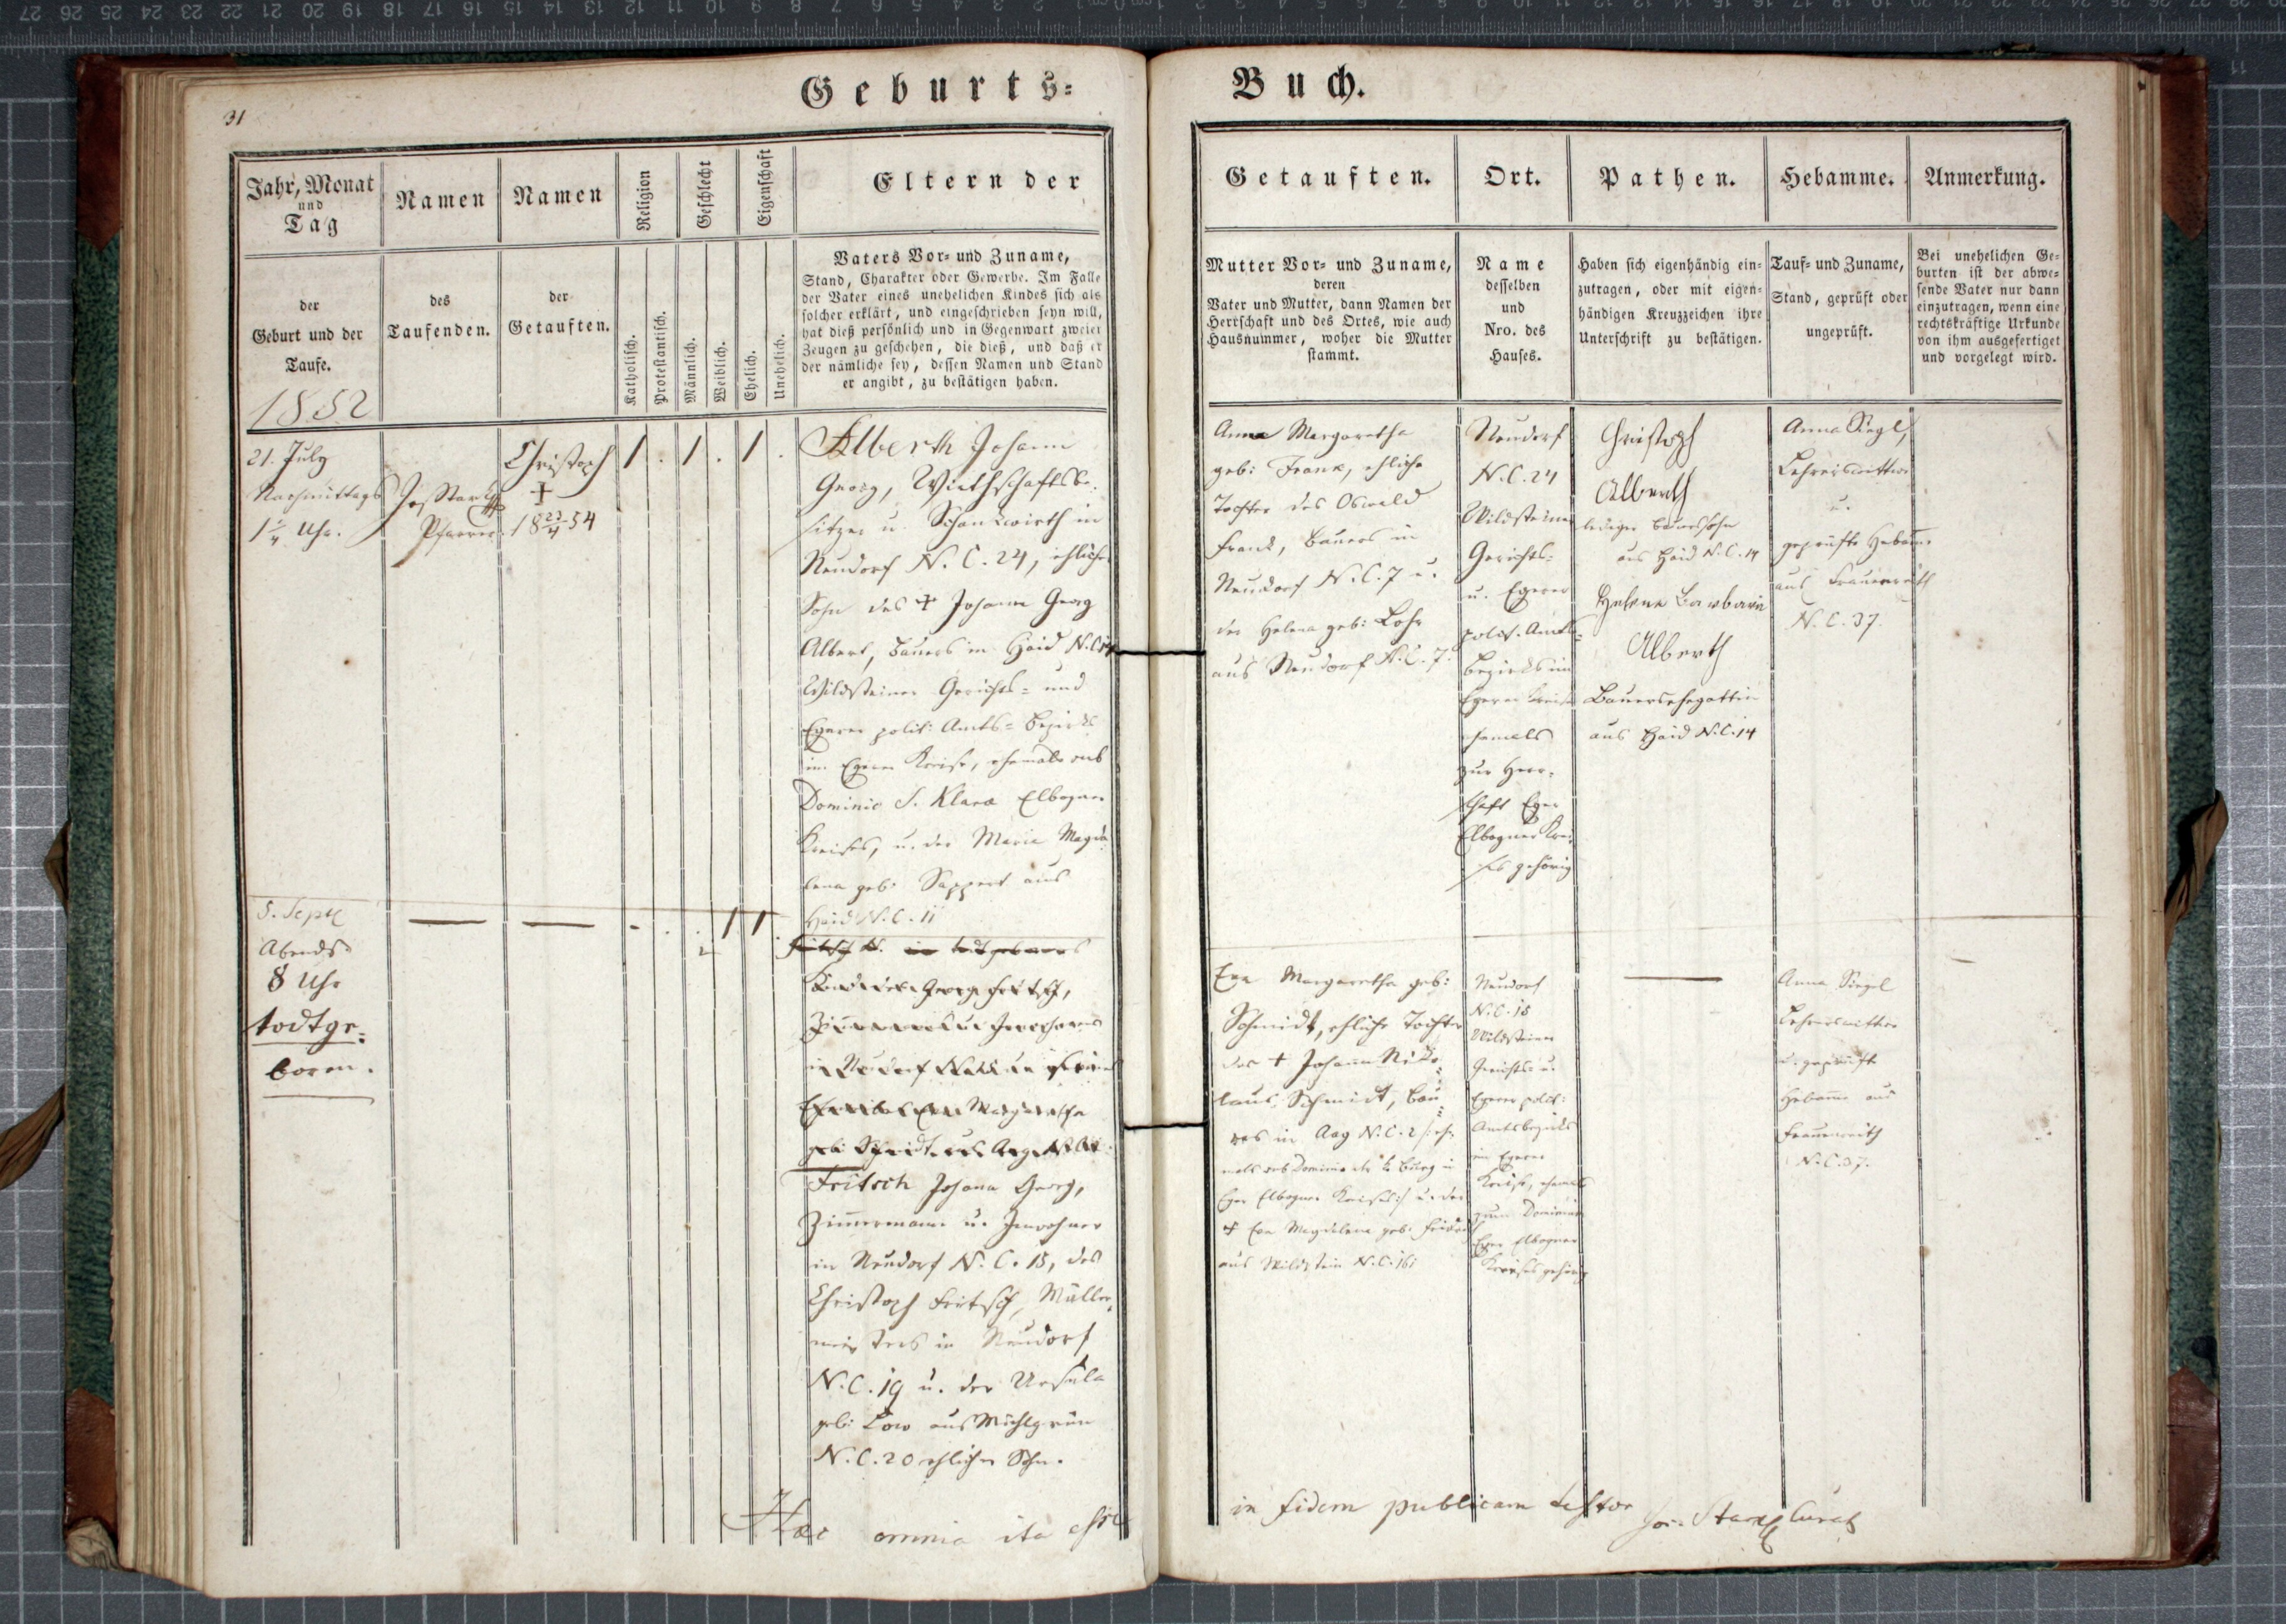 Geburts=
Buch.
31
Jahr, Monat
und
Tag
der
Geburt und der
Taufe.
1852
Namen
des
Taufenden.
Namen
der
Getauften.
Religion
Katholisch.
Protestantisch.
Geschlecht
Männlich.
Weiblich.
Eigenschaft
Ehelich.
Unehelich.
Eltern der
Vaters Vor- und Zuname,
Stand, Charakter oder Gewerbe. Im Falle
der Vater eines unehelichen Kindes sich als
solcher erklärt, und eingeschrieben seyn will,
hat dieß persönlich und in Gegenwart zweier
Zeugen zu geschehen, die dieß, und daß er
der nämliche sey, dessen Namen und Stand
er angibt, zu bestätigen haben.
Getauften.
Mutter Vor- und Zuname,
deren
Vater und Mutter, dann Namen der
Herrschaft und des Ortes, wie auch
Hausnummer, woher die Mutter
stammt.
Ort.
Name
desselben
und
Nro. des
Hauses.
Pathen.
Haben sich eigenhändig ein-
zutragen, oder mit eigen-
händigen Kreuzzeichen ihre
Unterschrift zu bestätigen.
Hebamme.
Tauf- und Zuname,
Stand, geprüft oder
ungeprüft.
Anmerkung.
Bei unehelichen Ge-
burten ist der abwe-
sende Vater nur dann
einzutragen, wenn eine
rechtskräftige Urkunde
von ihm ausgefertiget
und vorgelegt wird.
21. July
Nachmittags
1 1/4 Uhr.
Jos Stark
Pfarrer
Christoph
+
18 23/4 54
1 . 1 . 1 .
Alberth Johann
Georg, Wirthschaftsbe-
sitzer u. Schankwirth in
Neudorf N. C. 24, ehlicher
Sohn des + Johann Georg
Albert, Bauers in Haid N.C. 14
Wildsteiner Gerichts= und
Egerer polit: Amts= Bezirks
im Egerer Kreise, ehemals sub
Dominio S. Klara Elbogner
Kreises, u. der Maria Magda
lena geb: Sappert aus
Haid N. C. 11
Anna Margaretha
geb: Frank, ehliche
Tochter des Oswald
Frank, Bauers in
Neudorf N. C. 7 u.
der Helena geb: Lohr
aus Neudorf N. C. 7.
Neudorf
N. C. 24
Wildsteiner
Gerichts=
u. Egerer
polit. Amts=
bezirks im
Egerer Kreise
ehemals
zur Herr-
schaft Eger
Elbogner Krei-
ses gehörig
Christoph
Alberth
lediger Bauerssohn
aus Haid N. C. 14
Helena Barbara
Alberth
Bauersehegattin
aus Haid N. C. 14
Anna Siegl,
Lehrerswittwe
u.
geprüfte Hebamme
aus Frauenreuth
N. C. 37.
5. Sept
Abends
8 Uhr
todtge=
boren.
1 1
Fritsch Johann Georg,
Zimmermann u. Inwohner
in Neudorf N. C. 18, des
Christoph Fritsch, Müller-
meisters in Neudorf
N. C. 19 u. der Ursula
geb: Löw aus Mühlgrün
N. C. 20 ehlicher Sohn.
Eva Margaretha geb:
Schmidt, ehliche Tochter
des + Johann Niko=
laus Schmidt, Bau=
ers in Aag N. C. 2 /: ehe-
mals sub Dominio der k. Burg in
Eger Elbogner Kreises :/ u. der
+ Eva Magdalena geb:
aus Wildstein N. C. 161
Neudorf
N. C. 18
Wildsteiner
Gerichts= u.
Egerer polit:
Amtsbezirks
im Egerer
Kreise, ehemals
zum Dominium
Eger Elbogner
Kreises gehörig
Anna Siegel
Lehrerswittwe
u. geprüfte
Hebamme aus
Frauenreuth
N. C. 37.
Haec omnia ita esse
in fidem publicam testor Jos. Stark Curat